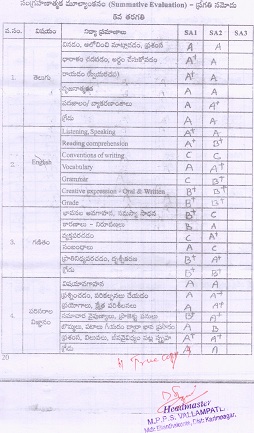 సంగ్రహణాత్మక మూల్యాంకనం (Summative Evaluation) - ప్రగతి నమోదు
5వ తరగతి
విషయం విద్యా ప్రమాణాలు SA1 SA2 SA3
వినడం, ఆలోచించి మాట్లాడడం, ప్రశంస A A
ధారాళంగా చదవడం, అర్థం చేసుకోవడం A+ A
1. తెలుగు A+ A
సృజనాత్మకత A A
పదజాలం/ వ్యాకరణాంశాలు A A+
గ్రేడు A A
Listening, Speaking A A+
Reading comprehension A B+
2. English Conventions of writing C C
Vocabulary A A+
Grammar C B+
Creative expression - Oral & Written B+ B+
Grade B+ B+
భావనల అవగాహన, సమస్యా సాధన B+ C
కారణాలు - నిరూపణలు B A
3. గణితం వ్యక్తపరచడం C A+
సంబంధాలు A C
ప్రాతినిధ్యపరచడం, దృశ్యీకరణ B+ A+
గ్రేడు B+ B+
విషయావగాహన A A
ప్రశ్నించడం, పరికల్పనలు చేయడం A A+
ప్రయోగాలు, క్షేత్ర పరిశీలనలు A A+
4. పరిసరాల విజ్ఞానం సమాచార నైపుణ్యాలు, ప్రాజెక్టు పనులు B+ A+
బొమ్మలు, పటాలు గీయడం ద్వారా భావ ప్రసారం A B
A A+
గ్రేడు A A
20
True copy
Headmaster
M.P.P.S. VALLAMPATLA